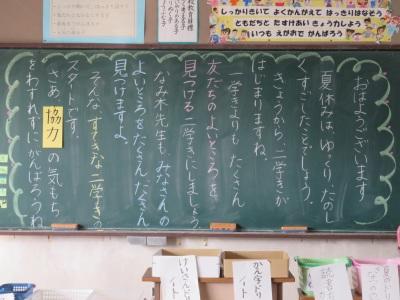 しっかりきいて よくかんがえて はっきりはなそう
ともだちと たすけあい きょう力しよう
いつも えがおで がんばろう
おはようございます
夏休みは、ゆっくり、たのし
くすごしたことでしょう。
きょうから、二学きが
はじまりますね。
一学きよりも たくさん
友だちのよいところを、
見つける二学きにしましょう。
なみ木先生も、みなさんの
よいところをたくさんたくさん
見つけますよ。
そんなすてきな二学きの
スタートです。
さあ、協力の気もち
をわすれずにがんばろうね
けいさんドリル
ノート
かん字ドリル
ノート